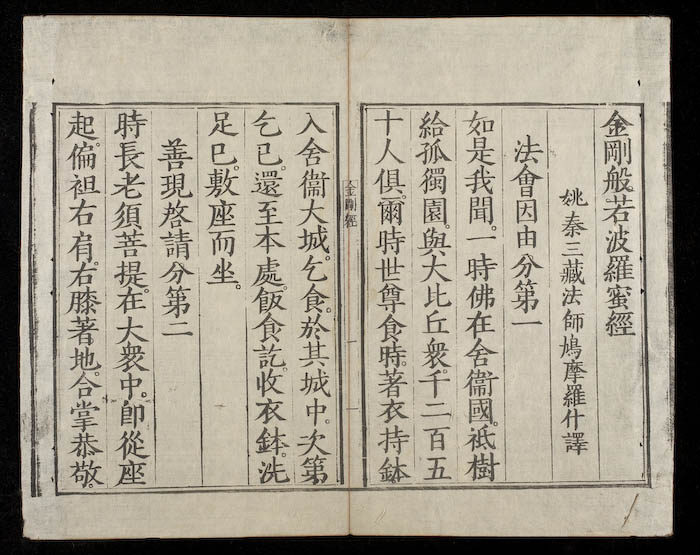 金剛般若波羅蜜經
姚秦三藏法師鳩摩羅什譯
法會因由分第一
如是我聞。一時佛在舍衞國。祗樹
給孤獨園。與大比丘衆。千二百五
十人俱。爾時世尊食時。著衣持鉢
金剛經
一
入舍衞大城。乞食。於其城中。次第
乞已。還至本處。飯食訖。收衣鉢。洗
足已。敷座而坐。
善現啓請分第二
時長老須菩提。在大衆中。卽從座
起。偏袒右肩。右膝著地。合掌恭敬。